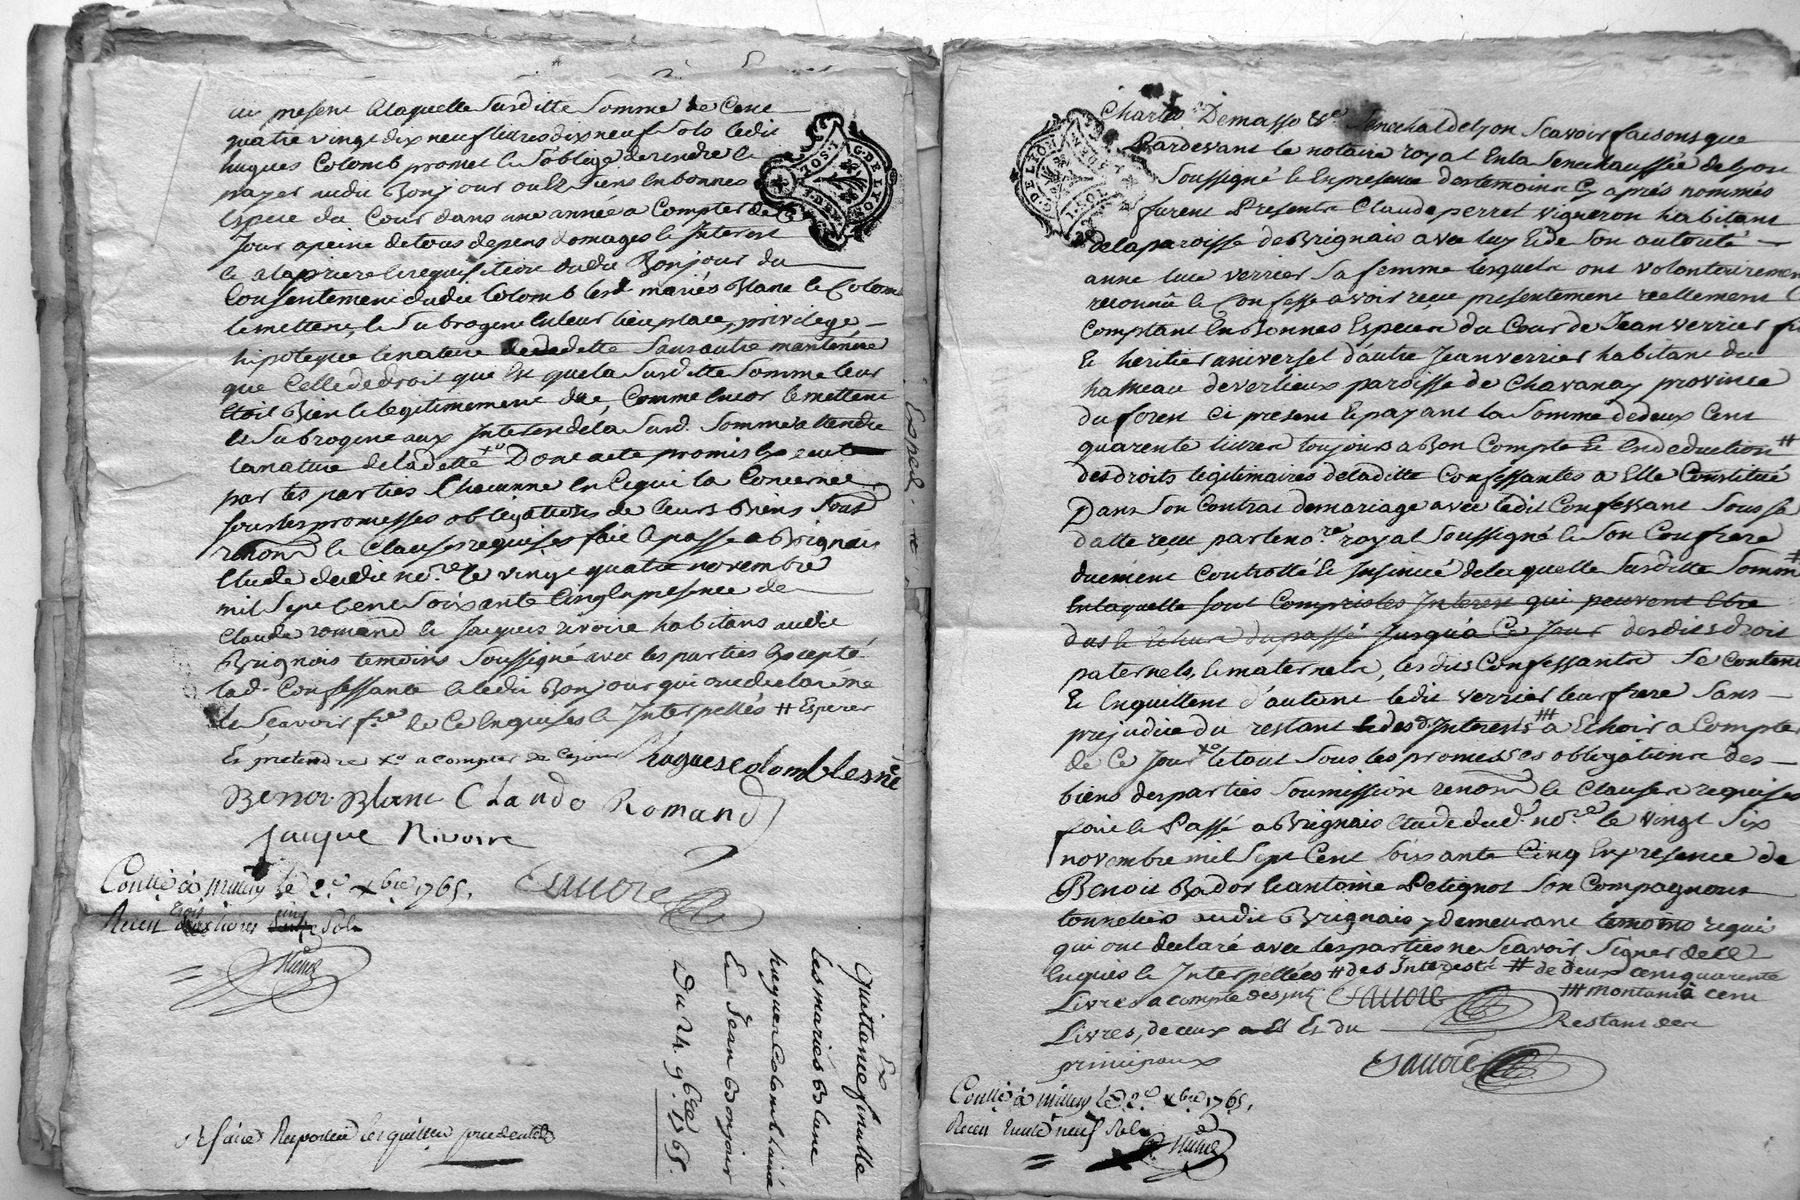 au present a laquelle surditte somme de Cent
quatre vingt dix neuf livres dix neuf sols ledit
hugues Colomb promet et s'oblige de rendre et
payer audit Bonjour ou és siens en bonnes
Espece du Cour dans une année a Compter de Ce
Jour a peine de tous depens domages et Interest
et a la priere et requisition dudit Bonjour du
Consentement dudit Colomb lesd mariés Blanc et Colomb
le mettent, et subrogent en leur lieu place, privilege
hipoteque et nature de dette sans autre maintenüe
que Celle de droit que Est que la surditte somme leur
Etoit Bien et legitimement düe, Comme encor le mettent
et subrogent aux Interest de la surd. somme attendu
la nature de la dette xo Dont acte promis
par les parties Chacunne en Ce qui la Concerne
sous les promesses obligations de leurs Biens soumd
renond et Clauses requises fait et passé a Brignais
Etude dudit no.re le vingt quatre novembre
mil sept Cent soixante Cinq en presence de
Claude romand et Jacques rivoire habitans audit
Brignais temoins soussigné avec les parties Excepté
lad. Confessante et ledit Bonjour qui ont declaré ne
le sçavoir f.re de Ce Enquises et Interpellés # Esperer
Et pretendre xo a compter de Ce jour hugues colomb lesné
Benoi Blanc Claude Romand
Jacque Rivoire
Contlé à Millery le 2.e xbre 1765.
Recu trois livres Cinq sols
Sauvore
G.DE LYON
Quittance finalle
Les mariés Blanc
hugues Colomb lainé
et Jean Bonjour
Du 24. 9bre 1765.
Charles Demasso &c Senechal de Lyon Scavoir faisons que
Pardevant le notaire royal En la Senechaussée de Lyon
Soussigné et En presence des temoins Cy aprés nommés
furent Presents Claude perret vigneron habitant
de la paroisse de Brignais avec luy et de Son autorité
anne luce verrier Sa femme lesquels ont volontairement
reconnü et Confessé avoir reçu presentement reellement
Comptant En Bonnes Especes du Cour de Jean verrier
Et heritier universel d'autre Jean verrier habitant du
hameau de verlieux paroisse de Chavanay province
du forest Ci present et payant la Somme de deux Cent
quarente livres toujours a Bon Compte Et En deduction #
des droits legitimaires de la ditte Confessantes a Elle Constitué
Dans Son Contrat de mariage avec ledit Confessant Sous sa
datte reçu par le no.re royal Soussigné et Son Confrere
duement Controllé et Insinué de la quelle Surditte Somme
En laquelle Sont Compris les Interest qui peuvent Etre
dus et Echus du passé Jusqu'a Ce Jour desdits droit
paternels, et maternels, lesdits Confessants Se Contente
Et En quittent d'autant ledit verrier leur frere Sans
prejudice du restant et des d. Interests ### a Echoir a Compter
de Ce Jour xo le tout Sous les promesses obligations des
biens des parties Soumission renond et Clauses requises
fait et Passé a Brignais Etude dud. no.re le vingt Six
novembre mil Sept Cent Soixante Cinq En presence de
Benoit Bador et antoine Petignot Son Compagnon
tonneliers audit Brignais y demeurant temoins requi
qui ont declaré avec les parties ne Scavoir Signer de Ce
Enquis et Interpellées # des Interests # de deux cent quarente
Livres a compte des Sauvore ### montants à cent
Livres, de ceux Et du Restant des
principaux
Sauvore
Contlé à Millery le 2.e xbre 1765.
Recu trente neuf sols